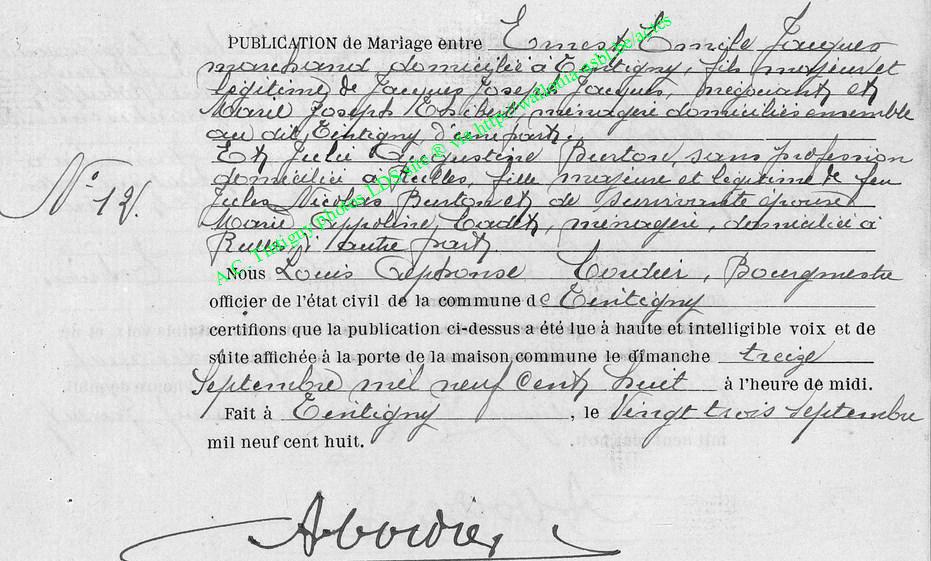 PUBLICATION de Mariage entre Ernest Emile Jacques
marchand, domicilié à Tintigny, fils majeur et
légitime de Jacques Joseph Jacques, négociant et
Marie Joseph ménagère domiciliés ensemble
au dit Tintigny d'une part.
Et Julie Augustine Burton, sans profession
domiciliée à Rulles, fille majeure et légitime de feu
Jules Nicolas Burton et de survivante épouse
Marie Appoline Cadet, ménagère, domiciliée à
Rulles, autre part.
N° 12.
Nous Louis Alphonse Cordier, Bourgmestre
officier de l'état civil de la commune de Tintigny
certifions que la publication ci-dessus a été lue à haute et intelligible voix et de
suite affichée à la porte de la maison commune le dimanche treize
Septembre mil neuf cent huit à l'heure de midi.
Fait à Tintigny, le Vingt trois Septembre
mil neuf cent huit.
A Cordier
A.C. Tintigny photos LDS site © via http://wallonia.asbl.be/actes